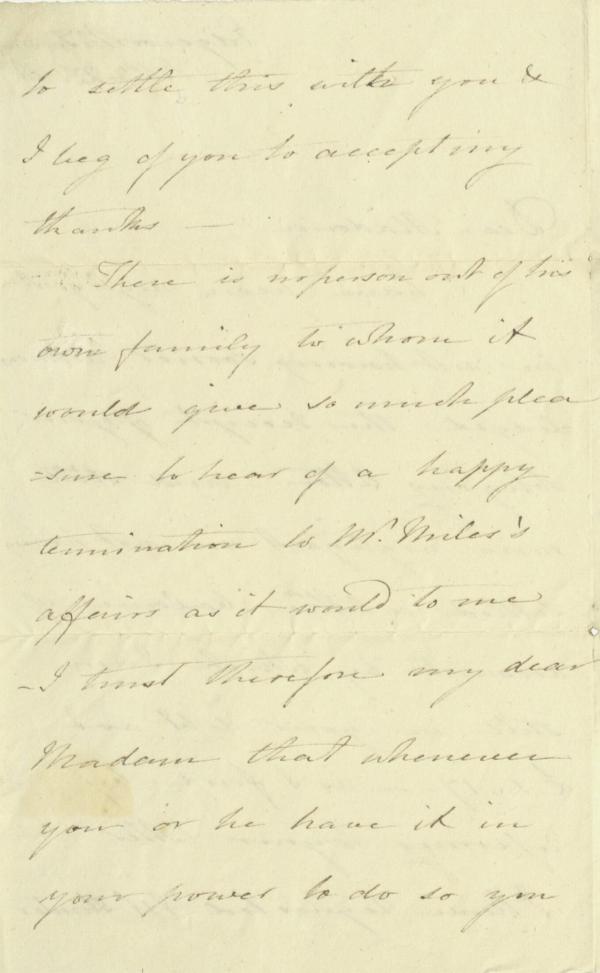 to settle this with you &
I beg of you to accept my
thanks —
There is no person out of his
own family to whom it
would give so much plea
=sure to hear of a happy
termination to Mr. Miles's
affairs as it would to me
- I trust therefore my dear
Madam that whenever
you or he have it in
your power to do so you